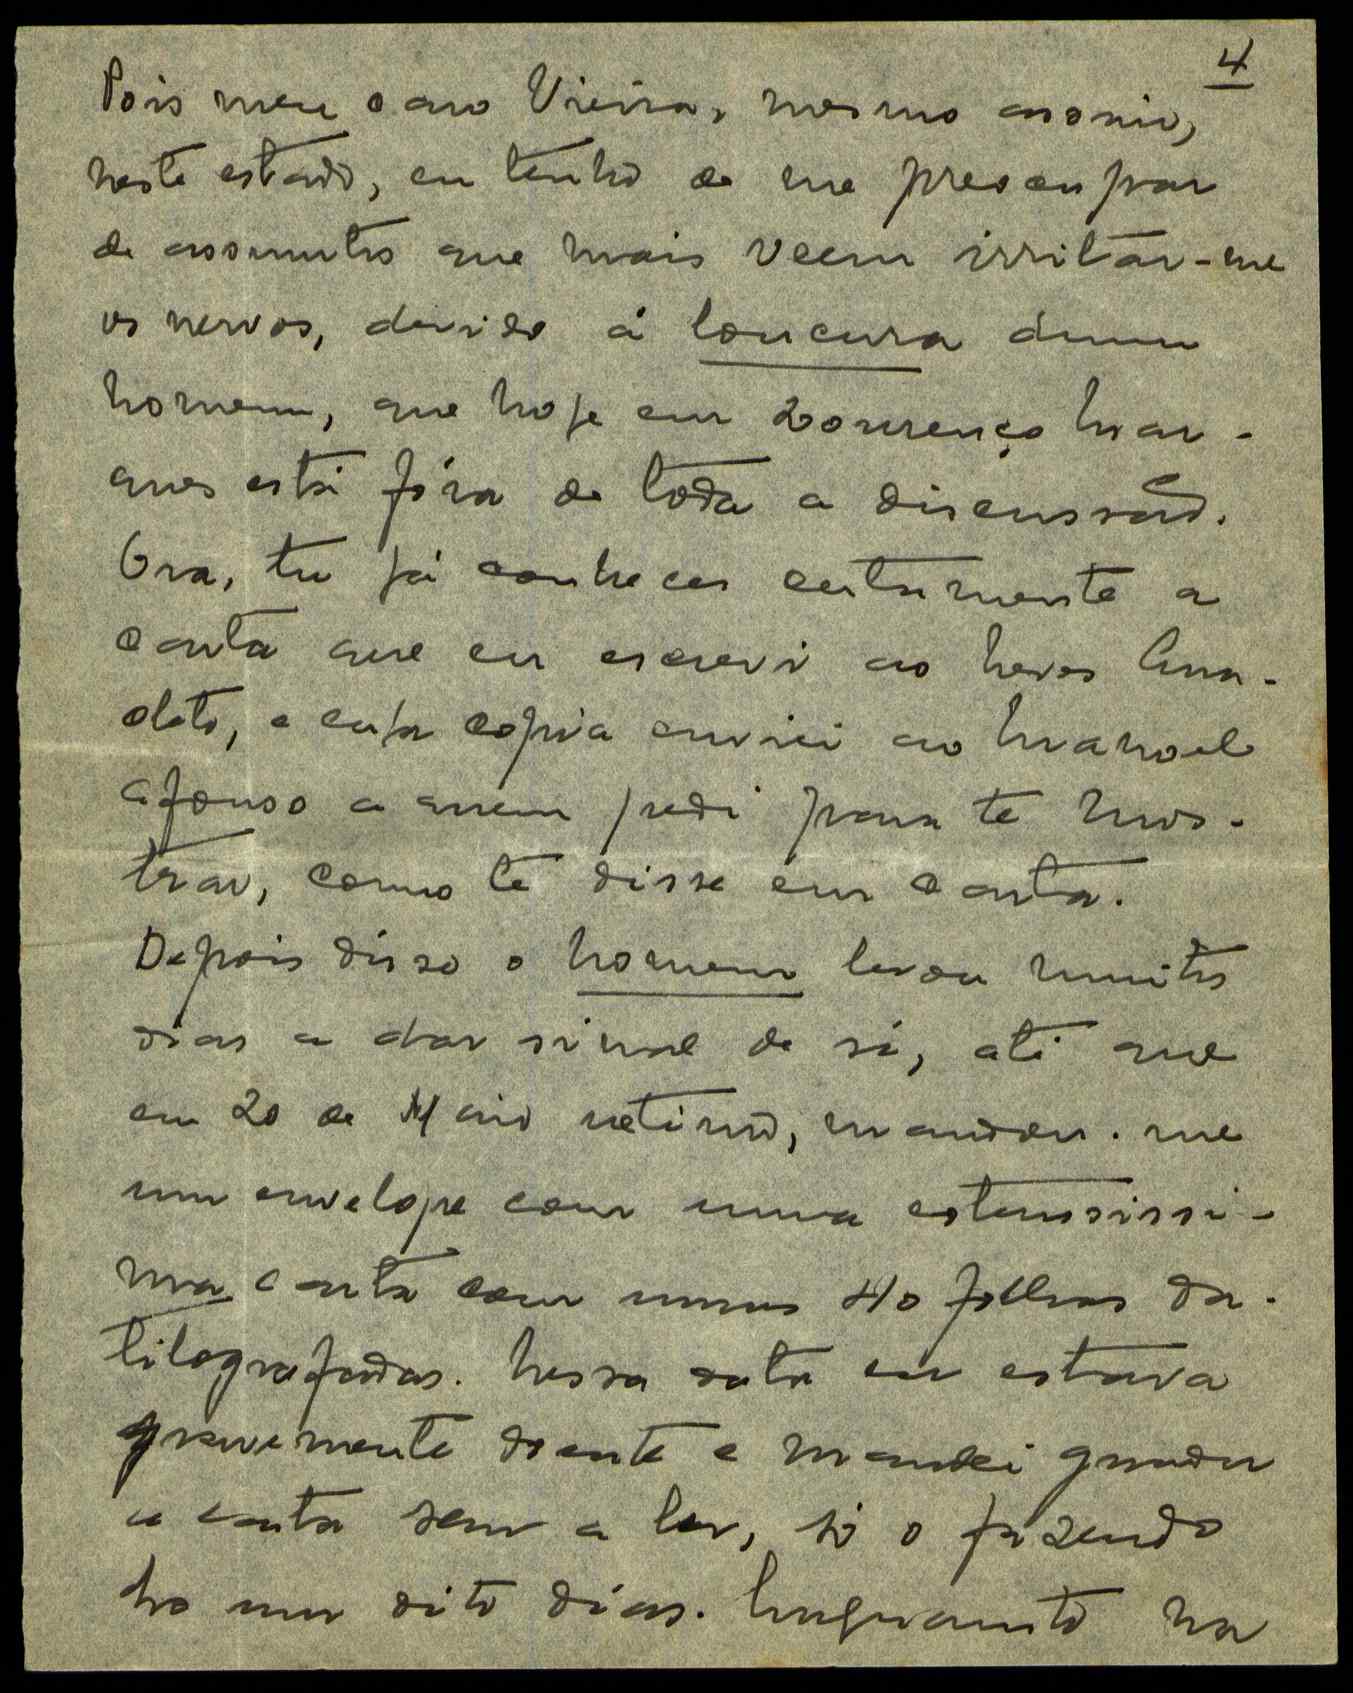 4
Pois meu caro Vieira, mesmo assim,
neste estado, eu tenho de me preocupar
de assuntos que mais veem irritar-me
os nervos, devido á loucura dum
homem, que hoje em Lourenço Mar-
ques está fóra de toda a discussão.
Ora, tu já conheces certamente a
carta que eu escrevi ao Neves Ana-
cleto, e cuja copia enviei ao Manoel
Afonso a quem pedi para te mos-
trar, como te disse em carta.
Depois disso o homem levou muitos
dias a dar sinal de si, até que
em 20 de Maio ultimo, mandou-me
um envelope com uma estensissi-
ma carta com umas 40 folhas da-
tilografadas. Nessa data eu estava
gravemente doente e mandei guardar
a carta sem a ler, só o fazendo
ha uns oito dias. Enquanto na